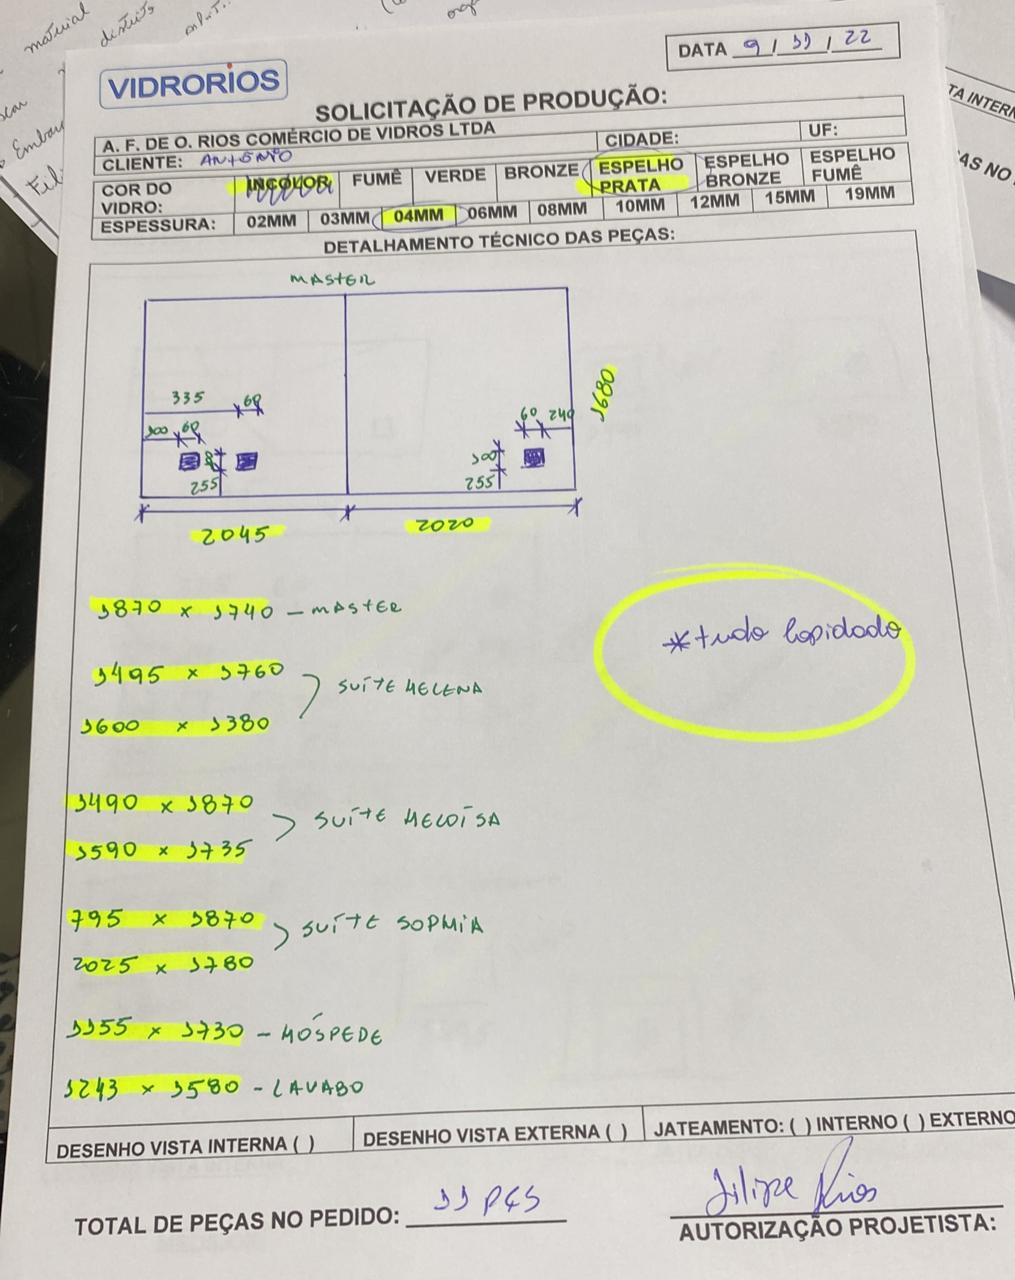 material
destits
DATA 9 / 11 / 22
VIDRORIOS
SOLICITAÇÃO DE PRODUÇÃO:
A. F. DE O. RIOS COMÉRCIO DE VIDROS LTDA
CIDADE:
UF:
CLIENTE: ANTÔNIO
COR DO VIDRO:
INCOLOR
FUMÊ
VERDE
BRONZE
ESPELHO PRATA
ESPELHO BRONZE
ESPELHO FUMÊ
ESPESSURA:
02MM
03MM
04MM
06MM
08MM
10MM
12MM
15MM
19MM
DETALHAMENTO TÉCNICO DAS PEÇAS:
MASTER
335
60
100
60
255
1680
60
240
100
255
2045
2020
1870 x 1740 - MASTER
1495 x 1760
1600 x 1380
SUÍTE HELENA
* tudo lapidado
1490 x 1870
1590 x 1735
SUÍTE HELOÍSA
795 x 1870
2025 x 1780
SUÍTE SOPHIA
1155 x 1730 - HÓSPEDE
1243 x 1580 - LAVABO
DESENHO VISTA INTERNA ( )
DESENHO VISTA EXTERNA ( )
JATEAMENTO: ( ) INTERNO ( ) EXTERNO
TOTAL DE PEÇAS NO PEDIDO: 11 PÇS
Filipe Rios
AUTORIZAÇÃO PROJETISTA:
TA INTERN
AS NO